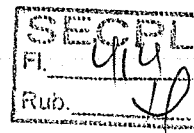 SECPL
Fl. 414
Rub.